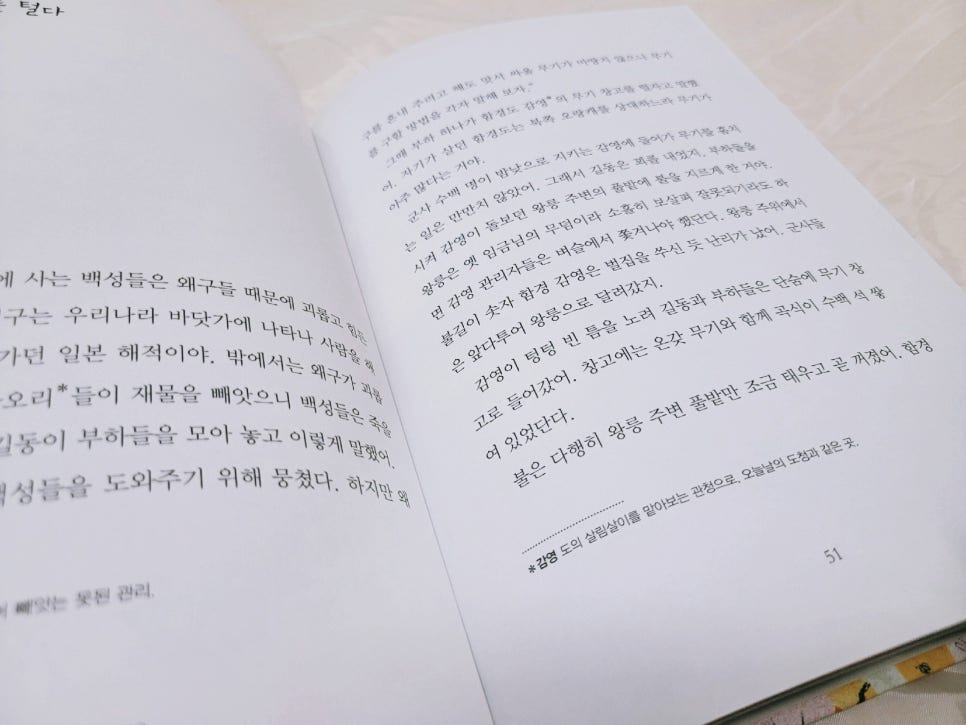 털다
에 사는 백성들은 왜구들 때문에 괴롭고 힘든
구는 우리나라 바닷가에 나타나 사람을 해
가던 일본 해적이야. 밖에서는 왜구가 괴롭
오리*들이 재물을 빼앗으니 백성들은 죽을
길동이 부하들을 모아 놓고 이렇게 말했어.
백성들을 도와주기 위해 뭉쳤다. 하지만 왜
빼앗는 못된 관리.
구를 혼내 주려고 해도 맞서 싸울 무기가 마땅치 않으니 무기
를 구할 방법을 각자 말해 보자."
그때 부하 하나가 함경도 감영*의 무기 창고를 털자고 말했
어. 자기가 살던 함경도는 북쪽 오랑캐를 상대하느라 무기가
아주 많다는 거야.
군사 수백 명이 밤낮으로 지키는 감영에 들어가 무기를 훔치
는 일은 만만치 않았어. 그래서 길동은 꾀를 내었지. 부하들을
시켜 감영이 돌보던 왕릉 주변의 풀밭에 불을 지르게 한 거야.
왕릉은 옛 임금님의 무덤이라 소홀히 보살펴 잘못되기라도 하
면 감영 관리자들은 벼슬에서 쫓겨나야 했단다. 왕릉 주위에서
불길이 솟자 함경 감영은 벌집을 쑤신 듯 난리가 났어. 군사들
은 앞다투어 왕릉으로 달려갔지.
감영이 텅텅 빈 틈을 노려 길동과 부하들은 단숨에 무기 창
고로 들어갔어. 창고에는 온갖 무기와 함께 곡식이 수백 석 쌓
여 있었단다.
불은 다행히 왕릉 주변 풀밭만 조금 태우고 곧 꺼졌어. 함경
*감영 도의 살림살이를 맡아보는 관청으로, 오늘날의 도청과 같은 곳.
51